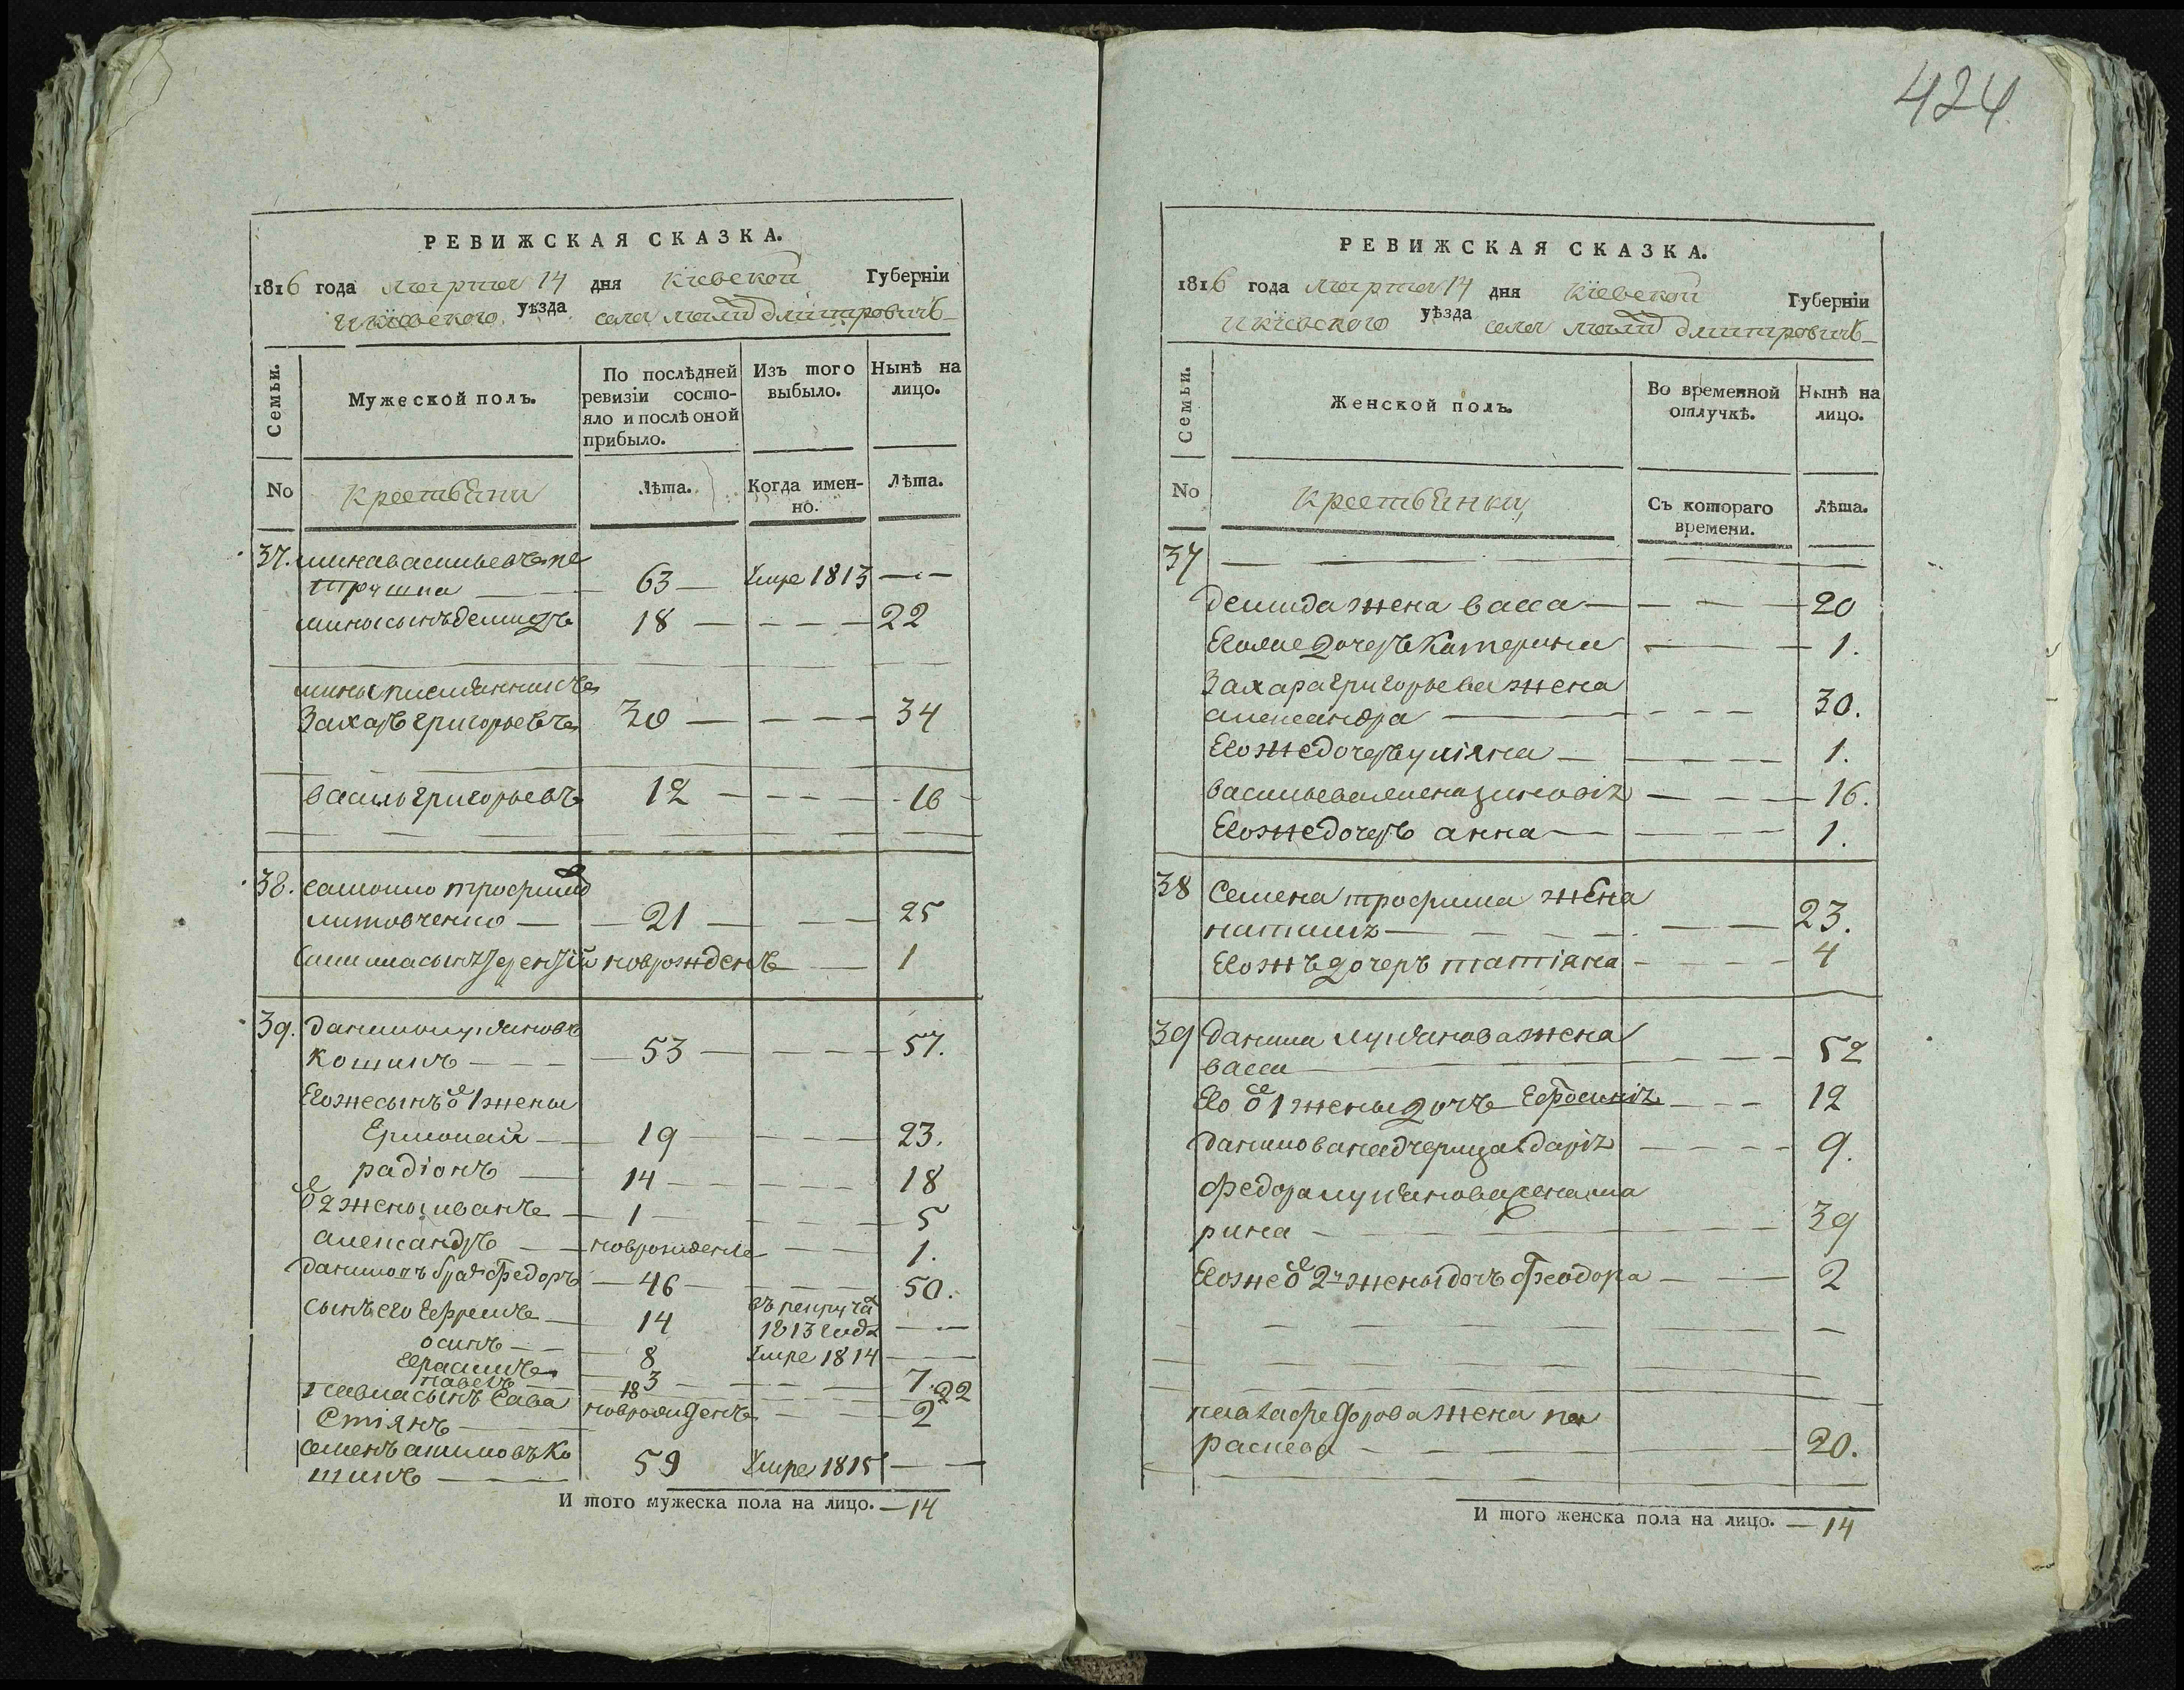 424
РЕВИЖСКАЯ СКАЗКА.
1816 года марта 14 дня Кіевской Губерніи
и Кіевского уѣзда села малы дмитровичъ
Семьи.
Мужеской полъ.
По послѣдней ревизіи состо-
яло и послѣ оной
прибыло.
Изъ того
выбыло.
Нынѣ на
лицо.
No
крестьяни
Лѣта.
Когда имен-
но.
Лѣта.
37. мина васильевъ пе
тряшка 63 Умре 1813
мины сынъ демидъ 18 22
мины племянникъ
Захаръ григорьевъ 30 34
василь григорьевъ 12 16
38. трофимо
литовченко 21 25
сынъ новрожденъ 1
39. данило лукяновъ
кошилъ 53 57.
Его же сынъ о 1 жены
Ермолай 19 23.
радіонъ 14 18
о 2 жены иванъ 1 5
александръ новрожденъ 1.
данилов братъ федоръ 46 50.
сынъ его Ефремъ 14 въ рекрута
1813 года
осипъ 8 Умре 1814
Герасимъ 3 7.
павелъ 18 22
павла сынъ Сава
стіянъ новрожденъ 2
семенъ акимовъ ко
шилъ 59 Умре 1815
И того мужеска пола на лицо. 14
РЕВИЖСКАЯ СКАЗКА.
1816 года марта 14 дня Кіевской Губерніи
и Кіевского уѣзда села малы дмитровичъ
Семьи.
Женской полъ.
Во временной
отлучкѣ.
Нынѣ на
лицо.
No
крестьянки
Съ котораго
времени.
Лѣта.
37
демида жена васса 20
Его же дочеръ Катерина 1.
Захара григорьева жена
александра 30.
Его же дочеръ уліяна 1.
васильева жена зиновія 16.
Его же дочеръ анна 1.
38 Семена трофима жена
наталя 23.
Его жъ дочеръ татіяна 4
39 данила лукянова жена
васса 52
Его о 1 жены дочъ Ефросинія 12
данилова падчерица дарія 9.
федора лукянова жена ма
рина 39
Его же о 2й жены дочъ феодора 2
павла федорова жена па
раскева 20.
И того женска пола на лицо. 14